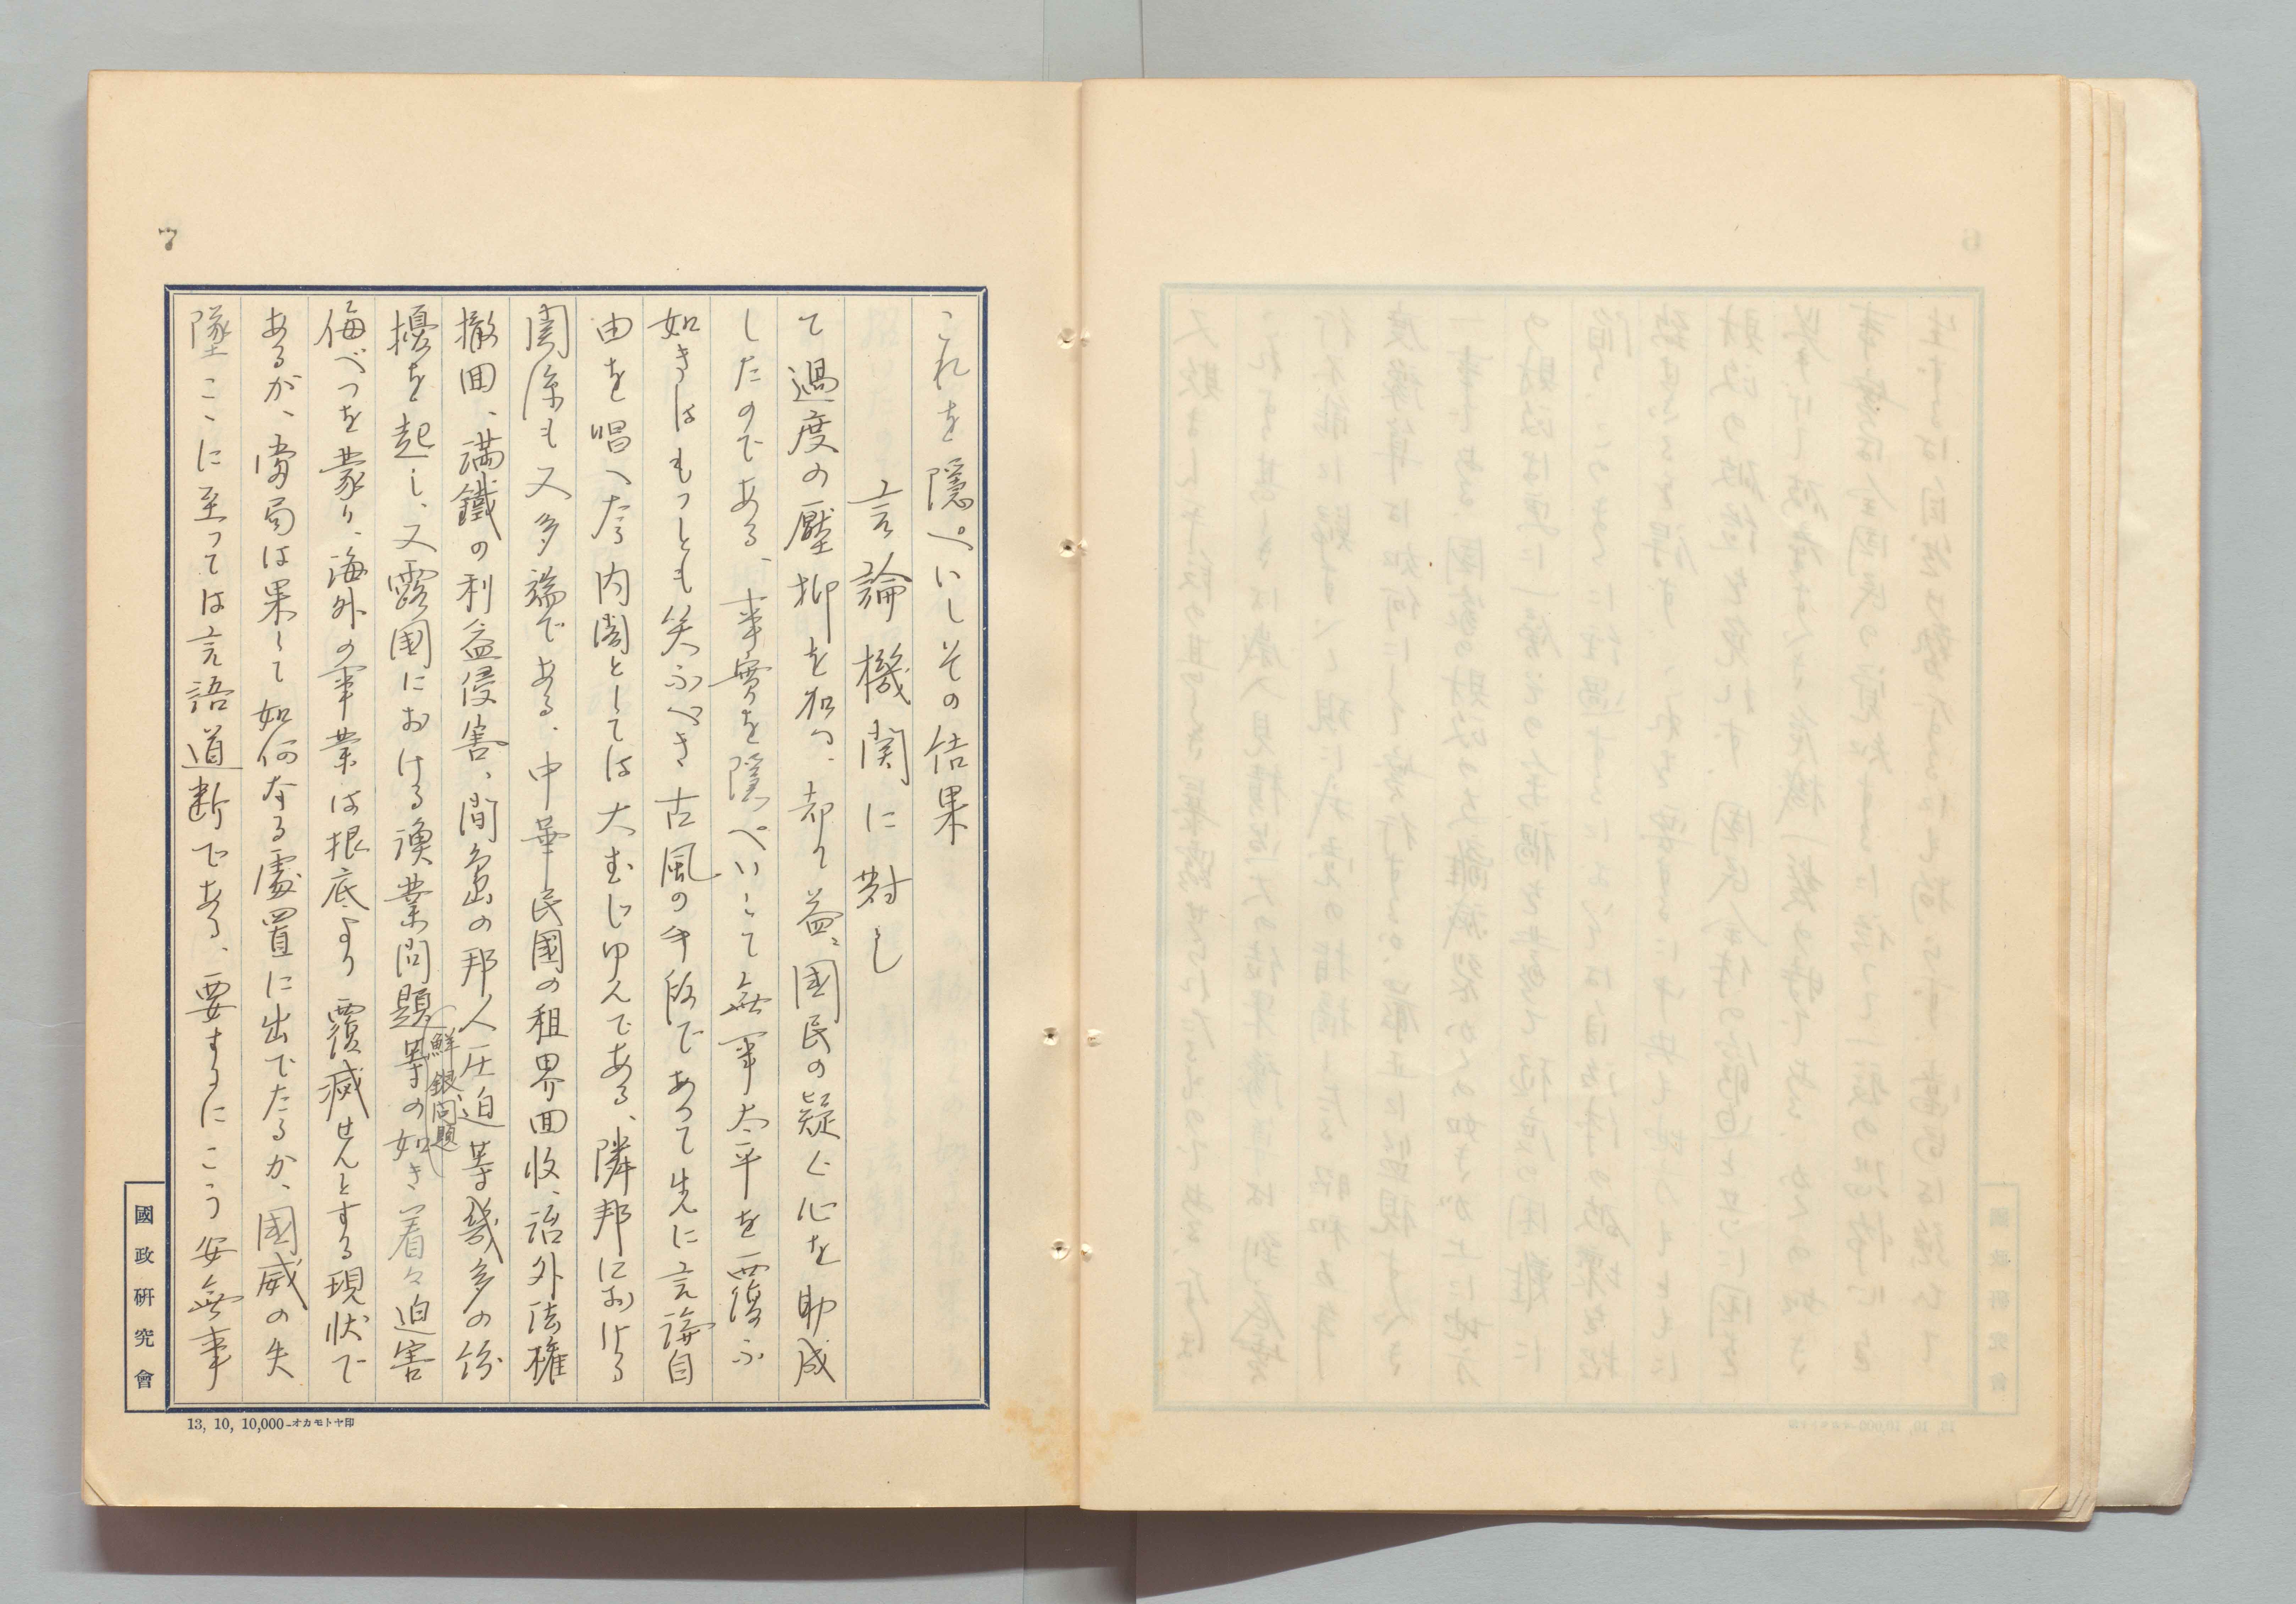 7
これを隠ぺいしその結果
言論機関に対し
て過度の壓抑を加へ、却て益々國民の疑ぐ心を助成
したのである、事實を隠ぺいして無事太平を覆ふ
如きはもっとも笑ふべき古風の手段であって先に言論自
由を唱へたる内閣としては大むじゆんである、隣邦における
関係も又多端である、中華民國の租界回收、治外法權
撤回、満鐵の利益侵害、間島の邦人圧迫等幾多の紛
擾を起し、又露國における漁業問題、鮮銀問題等の如き着々迫害
侮べつを蒙り、海外の事業は根底より覆滅せんとする現状で
あるが、當局は果して如何なる處置に出でたるか、國威の失
墜こゝに至っては言語道断である、要するにこう安無事
國政研究會
13, 10, 10,000-オカモトヤ印